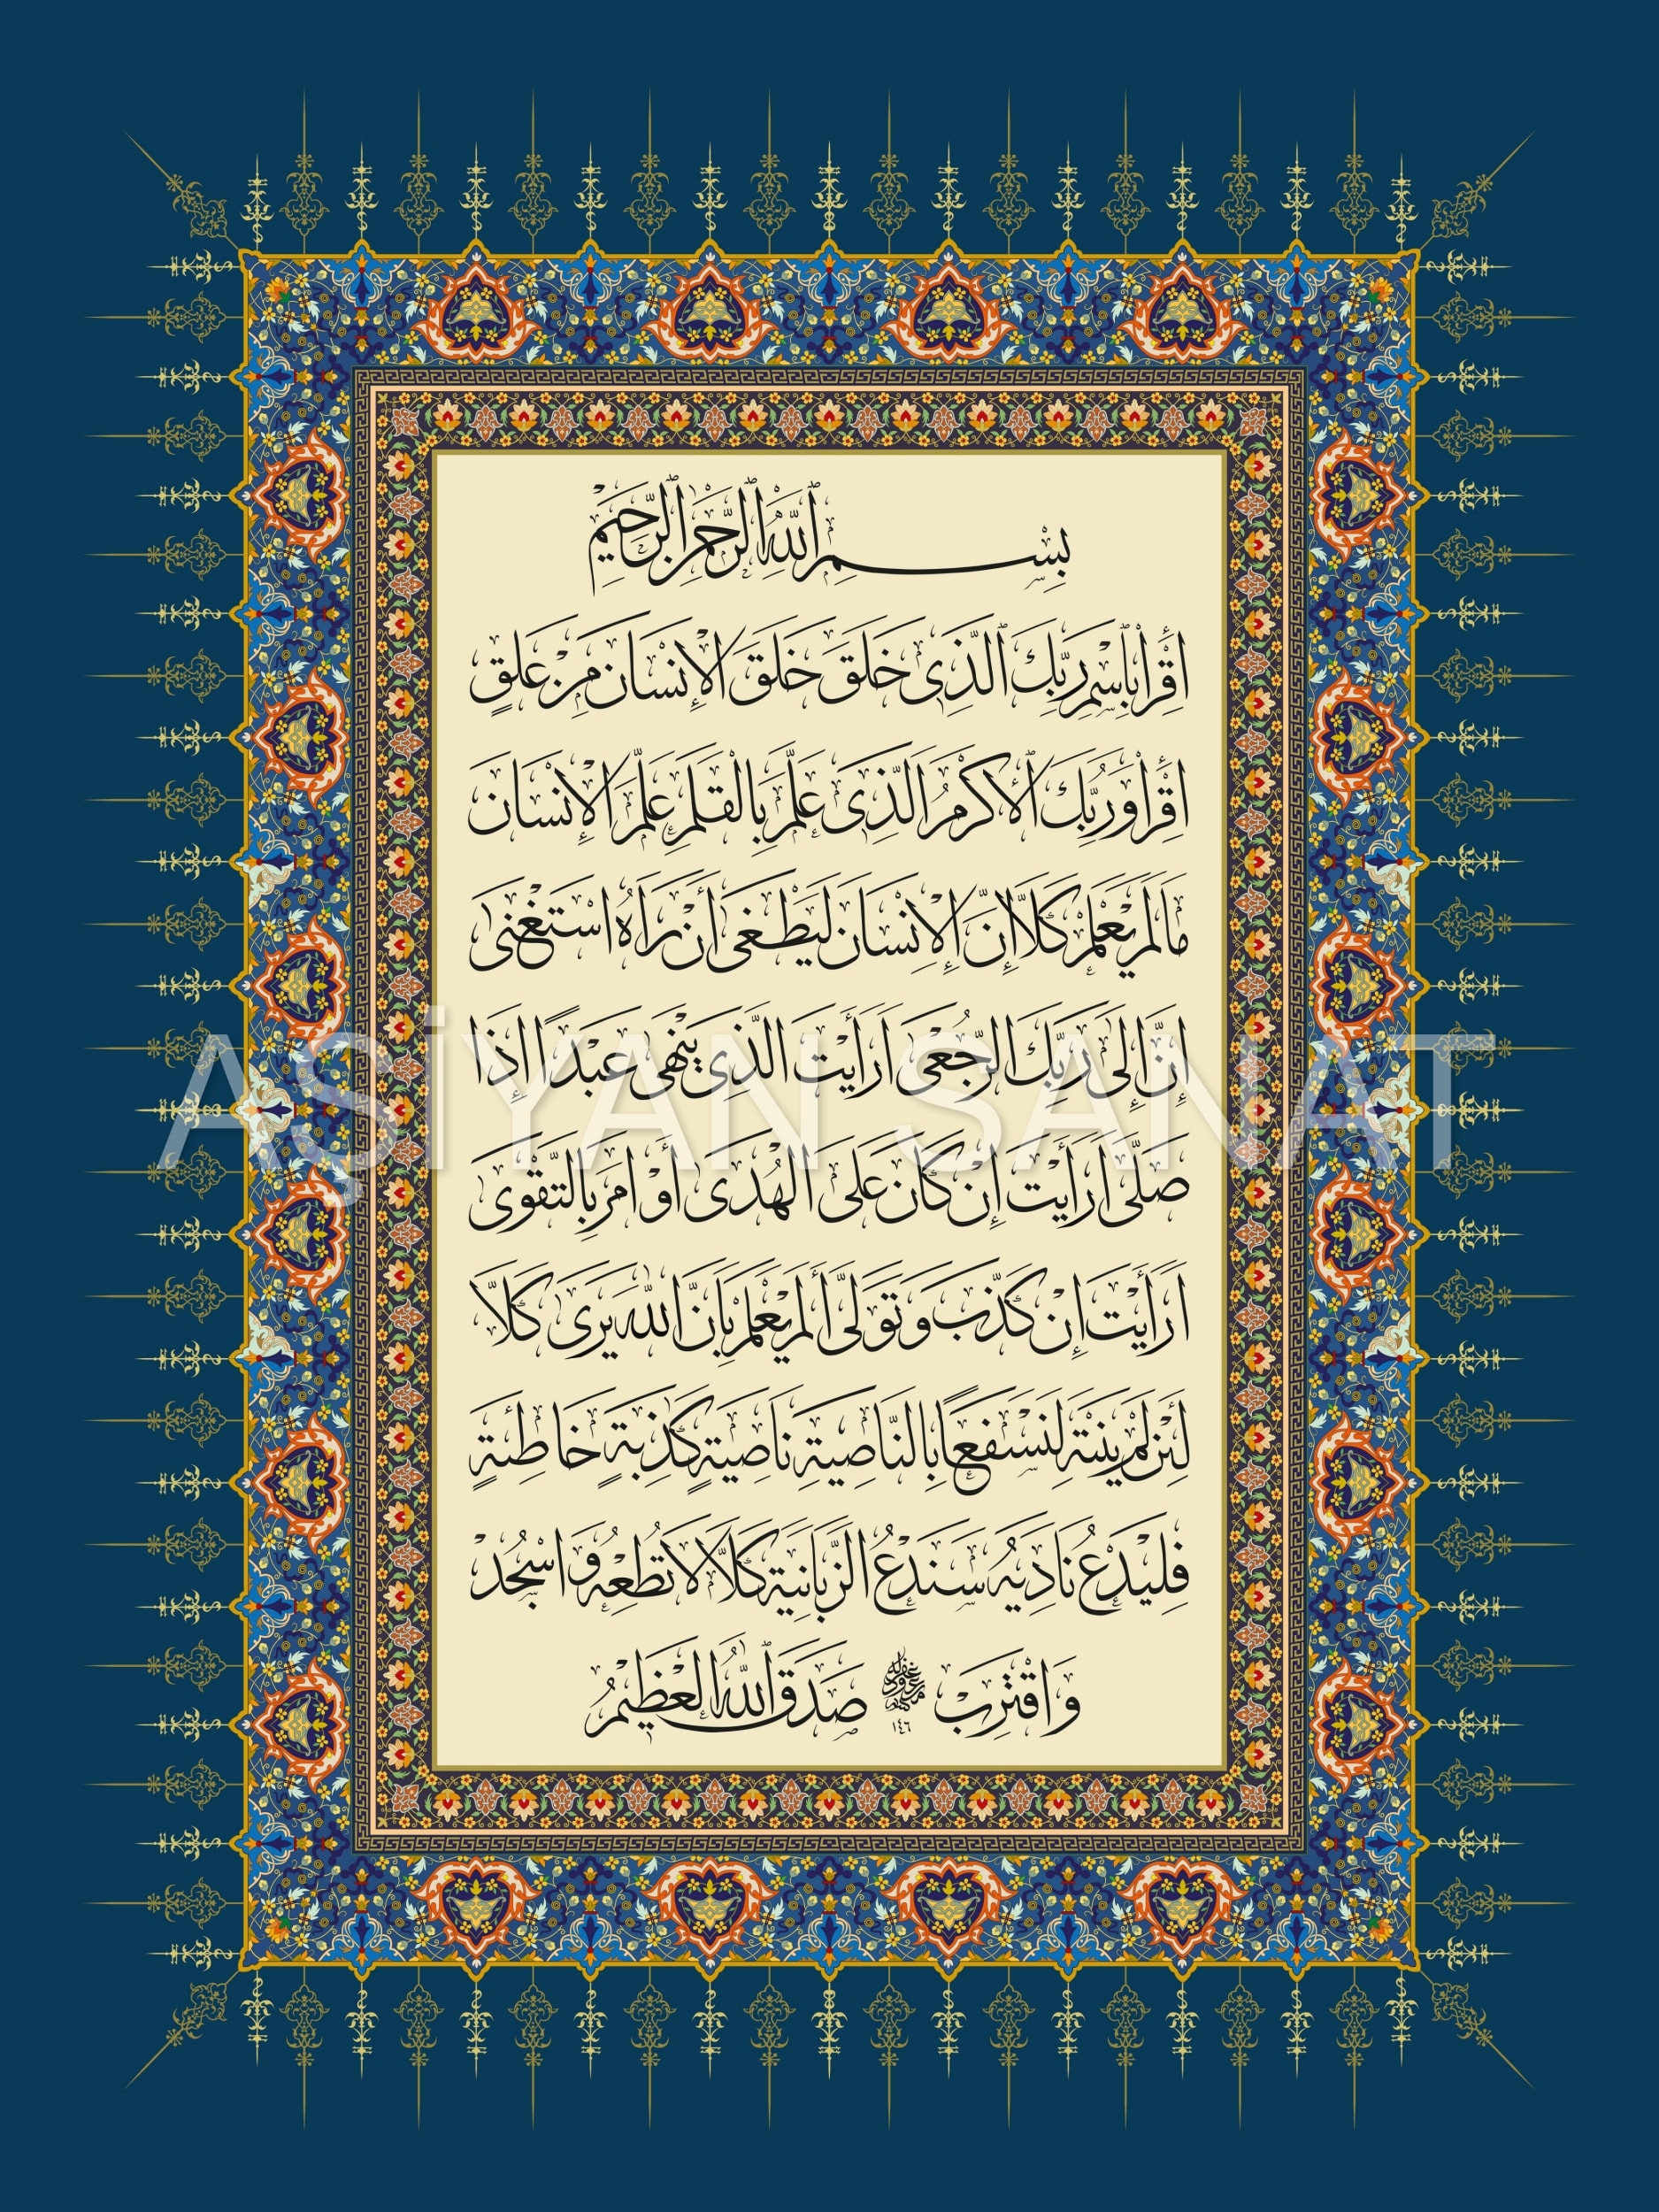 بِسْمِ اللّٰهِ الرَّحْمٰنِ الرَّحِيمِ
اِقْرَأْ بِاسْمِ رَبِّكَ الَّذِى خَلَقَ خَلَقَ الْاِنْسَانَ مِنْ عَلَقٍ
اِقْرَأْ وَرَبُّكَ الْاَكْرَمُ الَّذِى عَلَّمَ بِالْقَلَمِ عَلَّمَ الْاِنْسَانَ
مَا لَمْ يَعْلَمْ كَلَّا اِنَّ الْاِنْسَانَ لَيَطْغٰى اَنْ رَاٰهُ اسْتَغْنٰى
اِنَّ اِلٰى رَبِّكَ الرُّجْعٰى اَرَاَيْتَ الَّذِى يَنْهٰى عَبْدًا اِذَا
صَلّٰى اَرَاَيْتَ اِنْ كَانَ عَلَى الْهُدٰى اَوْ اَمَرَ بِالتَّقْوٰى
اَرَاَيْتَ اِنْ كَذَّبَ وَتَوَلّٰى اَلَمْ يَعْلَمْ بِاَنَّ اللّٰهَ يَرٰى كَلَّا
لَئِنْ لَمْ يَنْتَهِ لَنَسْفَعًا بِالنَّاصِيَةِ نَاصِيَةٍ كَاذِبَةٍ خَاطِئَةٍ
فَلْيَدْعُ نَادِيَهُ سَنَدْعُ الزَّبَانِيَةَ كَلَّا لَا تُطِعْهُ وَاسْجُدْ
وَاقْتَرِبْ صَدَقَ اللّٰهُ الْعَظِيمُ
ASİYAN SANAT